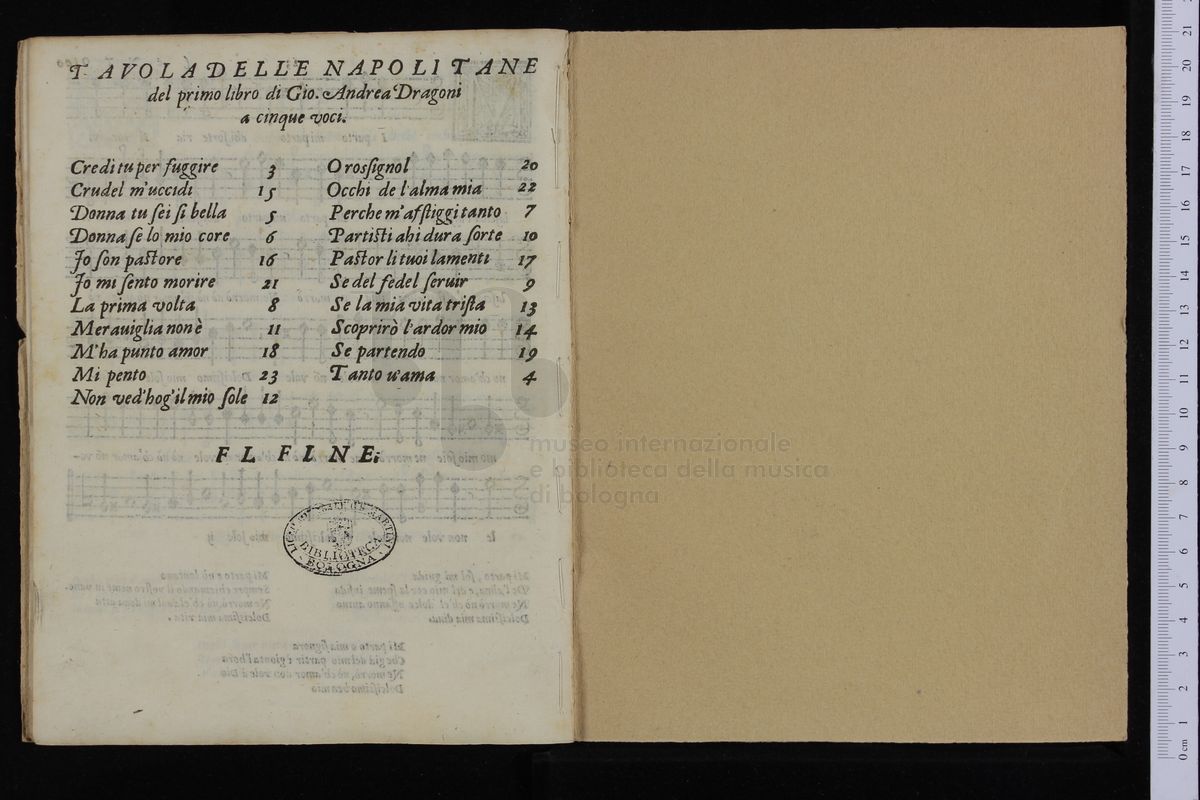 TAVOLA DELLE NAPOLITANE
del primo libro di Gio. Andrea Dragoni
a cinque voci.
Credi tu per fuggire 3
Crudel m'uccidi 15
Donna tu sei si bella 5
Donna se lo mio core 6
Io son pastore 16
Io mi sento morire 21
La prima volta 8
Merauiglia non è 11
M'ha punto amor 18
Mi pento 23
Non ved'hog'il mio sole 12
O rossignol 20
Occhi de l'alma mia 22
Perche m'affliggi tanto 7
Partisti ahi dura sorte 10
Pastor li tuoi lamenti 17
Se del fedel seruir 9
Se la mia vita trista 13
Scoprirò l'ardor mio 14
Se partendo 19
Tanto u'ama 4
FL FINE.
BIBLIOTECA
BOLOGNA
museo internazionale
e biblioteca della musica
di bologna
0 cm 1 2 3 4 5 6 7 8 9 10 11 12 13 14 15 16 17 18 19 20 21